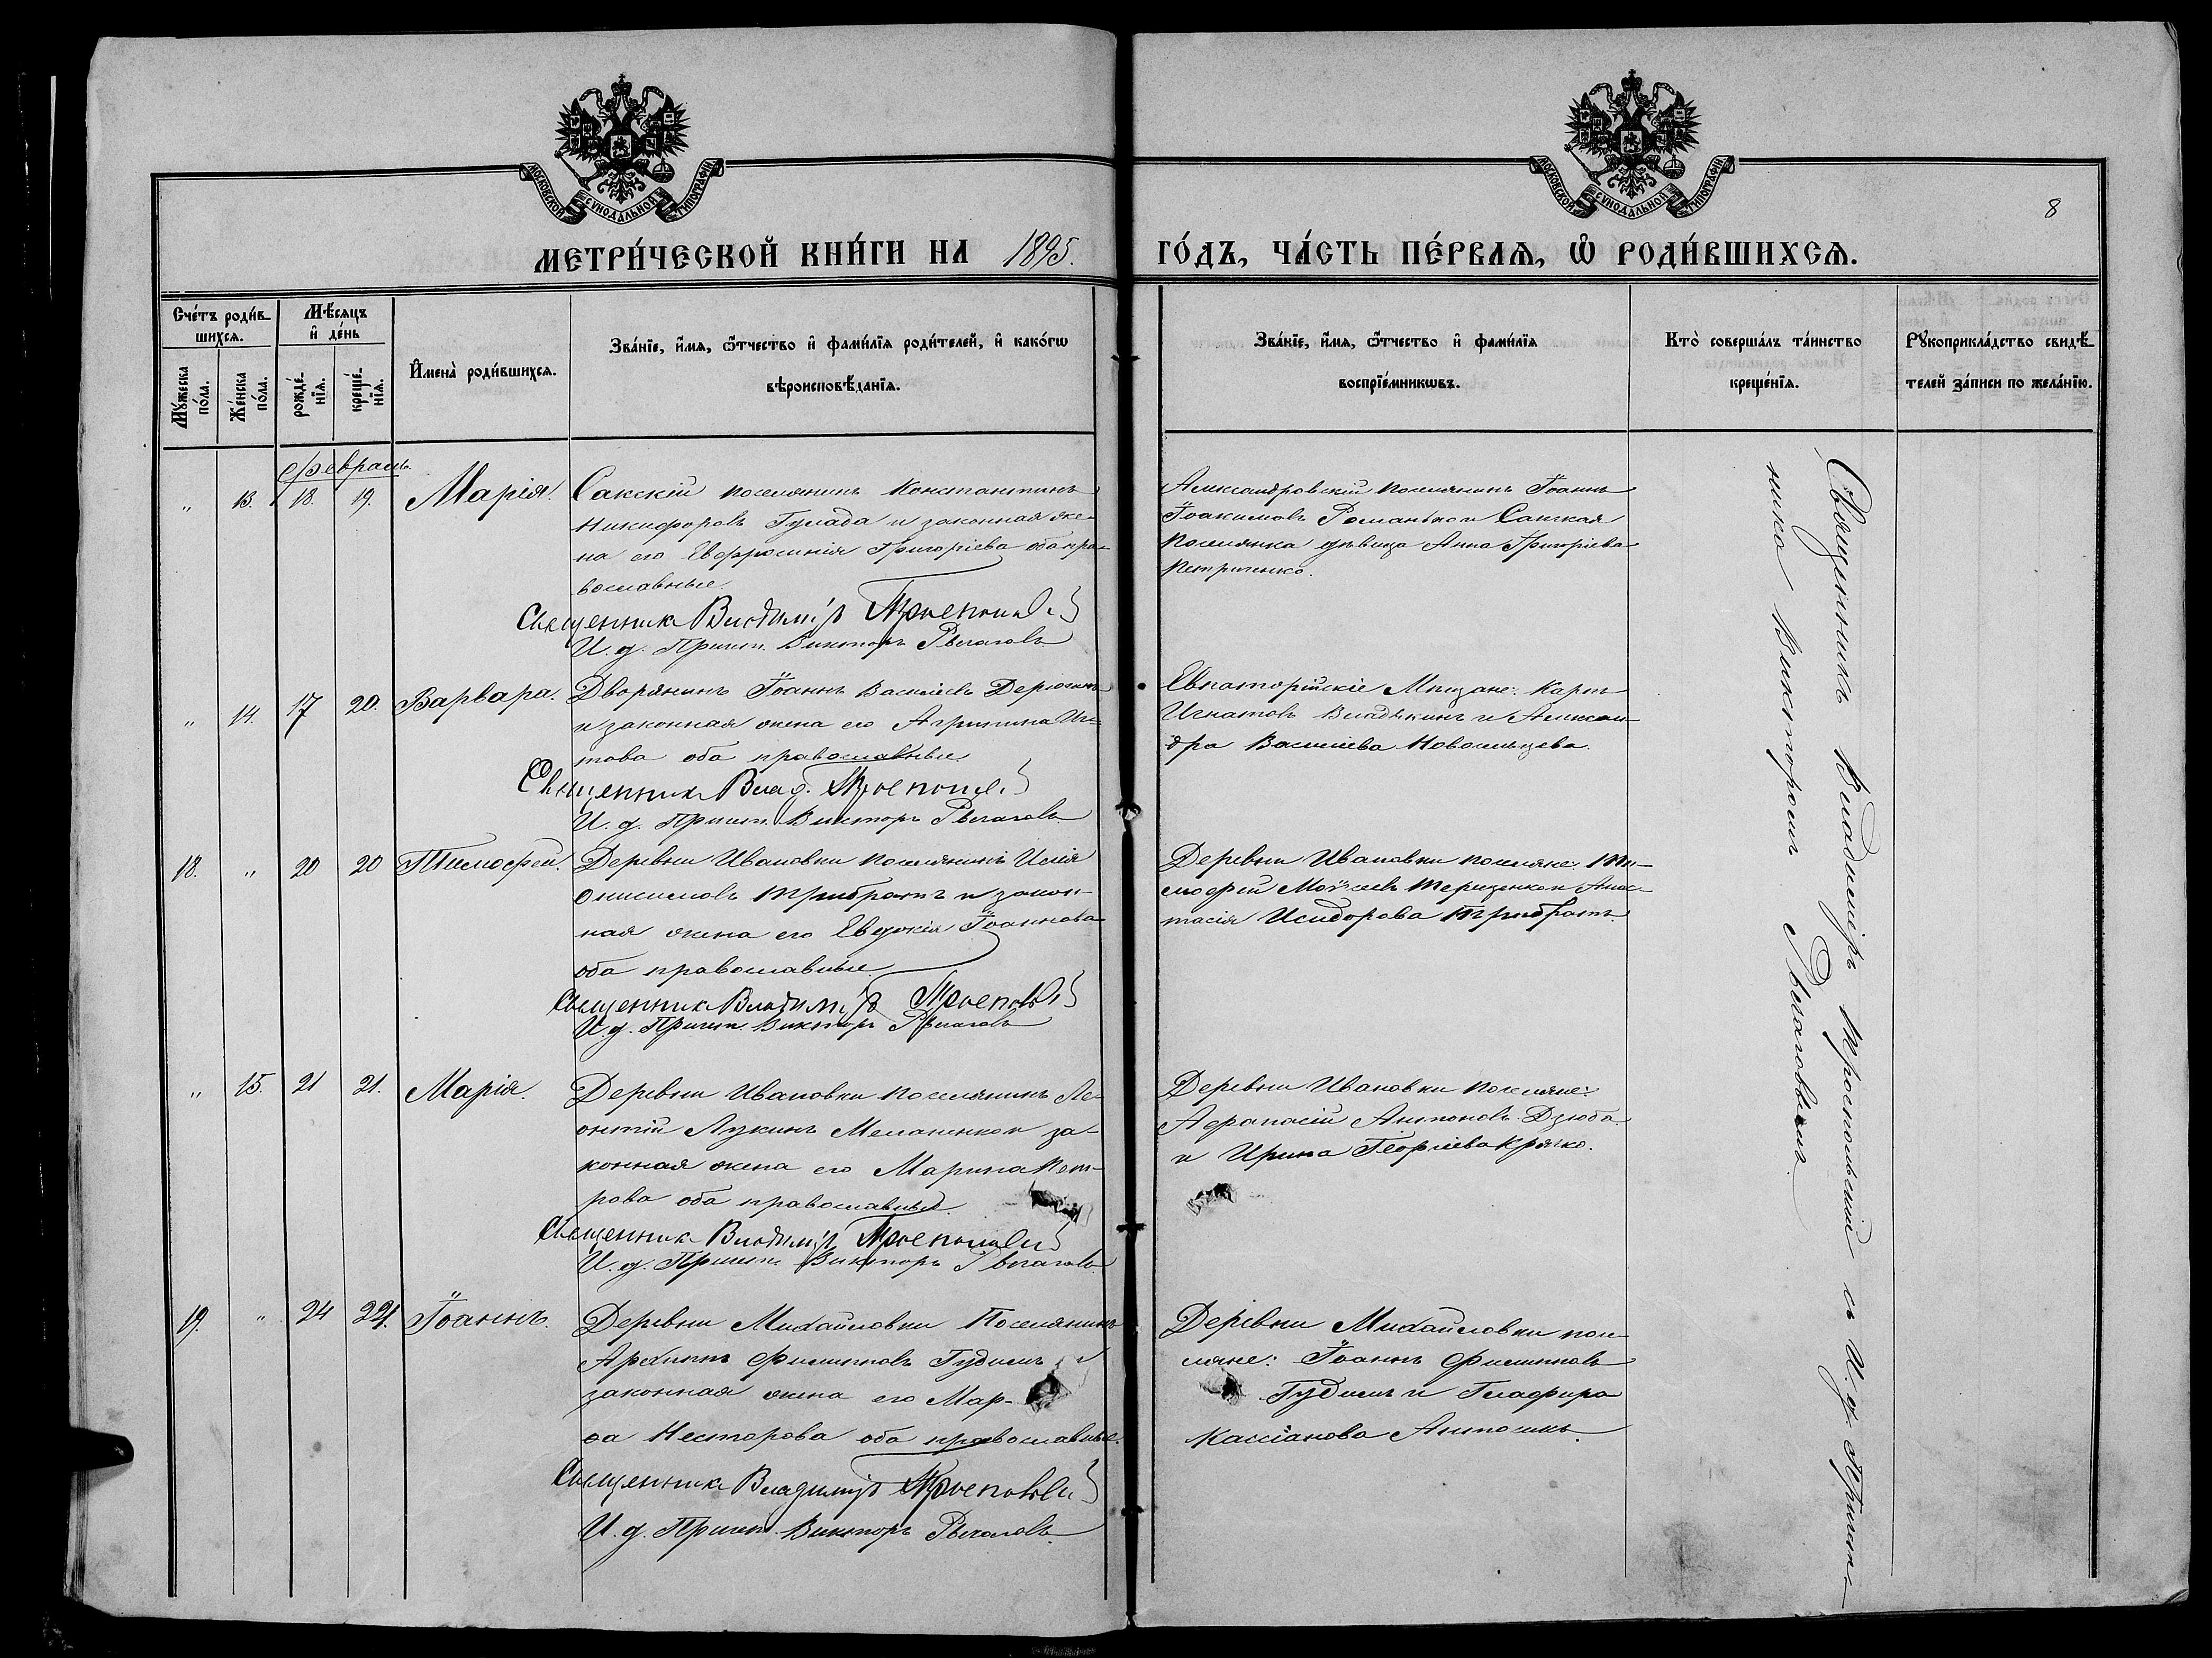 МОСКОВСКОЙ СѴНОДАЛЬНОЙ ТИПОГРАФІИ
МОСКОВСКОЙ СѴНОДАЛЬНОЙ ТИПОГРАФІИ
8
МЕТРИ́ЧЕСКОЙ КНИ́ГИ НА 1895. ГО́ДЪ, ЧА́СТЬ ПЕ́РВАѦ, Ѽ РОДИ́ВШИХСѦ.
Сче́тъ роди́в-
шихсѧ.
Мꙋ́жеска по́ла.
Же́нска по́ла.
Мѣ́сѧцъ
и҆ де́нь
рожде́-
нїѧ.
креще́-
нїѧ.
И҆мена̀ роди́вшихсѧ.
Зва́нїе, и҆́мѧ, ѻ҆́тчество и҆ фами́лїѧ роди́телей, и҆ како́гѡ
вѣроисповѣ́данїѧ.
Зва́нїе, и҆́мѧ, ѻ҆́тчество и҆ фами́лїѧ
воспрїе́мникѡвъ.
Кто̀ соверша́лъ та́инство
креще́нїѧ.
Рꙋкоприкла́дство свидѣ́-
телей за́писи по жела́нїю.
Февраль.
" 13. 18. 19. Марія.
Сакскій поселянинъ Константинъ
Никифоровъ Гулада и законная же-
на его Евфросинія Григоріева оба пра-
вославные
Священникъ Владиміръ Тропольскій
И. д. Причет. Викторъ Рычаговъ
Александровскій поселянинъ Іоаннъ
Іоакимовъ Романько и Сакская
поселянка дѣвица Анна Григоріева
Петриченко.
" 14. 17 20. Варвара.
Дворянинъ Іоаннъ Васильевъ
и законная жена его Агрипина Иг-
това оба православные
Священникъ Влад. Тропольскій
И. д. Причет. Викторъ Рычаговъ
Евпаторійскіе Мещане: Карпъ
Игнатовъ Владыкинъ и Алексан-
дра Васильева Новосельцева.
18. " 20 20 Тимофей.
Деревни Ивановки поселянинъ
Онисимовъ Трибратъ и закон-
ная жена его Евдокія Іоаннова
оба православные
Священникъ Владиміръ Тропольскій
И. д. Причет. Викторъ Рычаговъ
Деревни Ивановки поселяне: Ти-
мофей Моѵсеевъ Терещенко и Анас-
тасія Исидорова Трибратъ.
" 15. 21 21. Марія.
Деревни Ивановки поселянинъ Ле-
онтій Лукинъ Меланенко и за-
конная жена его Марина Пет-
рова оба православные.
Священникъ Владиміръ Тропольскій
И. д. Причет. Викторъ Рычаговъ
Деревни Ивановки поселяне:
Афанасій Антоновъ Дзюба
и Ирина Георгіева Крячко.
19. " 24 24. Іоаннъ.
Деревни Михайловки Поселянинъ
Архипъ Филиповъ Гудимъ и
законная жена его Мар-
ѳа Несторова оба православные.
Священникъ Владиміръ Тропольскій
И. д. Причет. Викторъ Рычаговъ
Деревни Михайловки посе-
ляне: Іоаннъ Филиповъ
Гудимъ и Глафира
Кассіанова
Священникъ Владиміръ Тропольскій съ И. д. Причет-
ника Викторомъ Рычаговымъ.